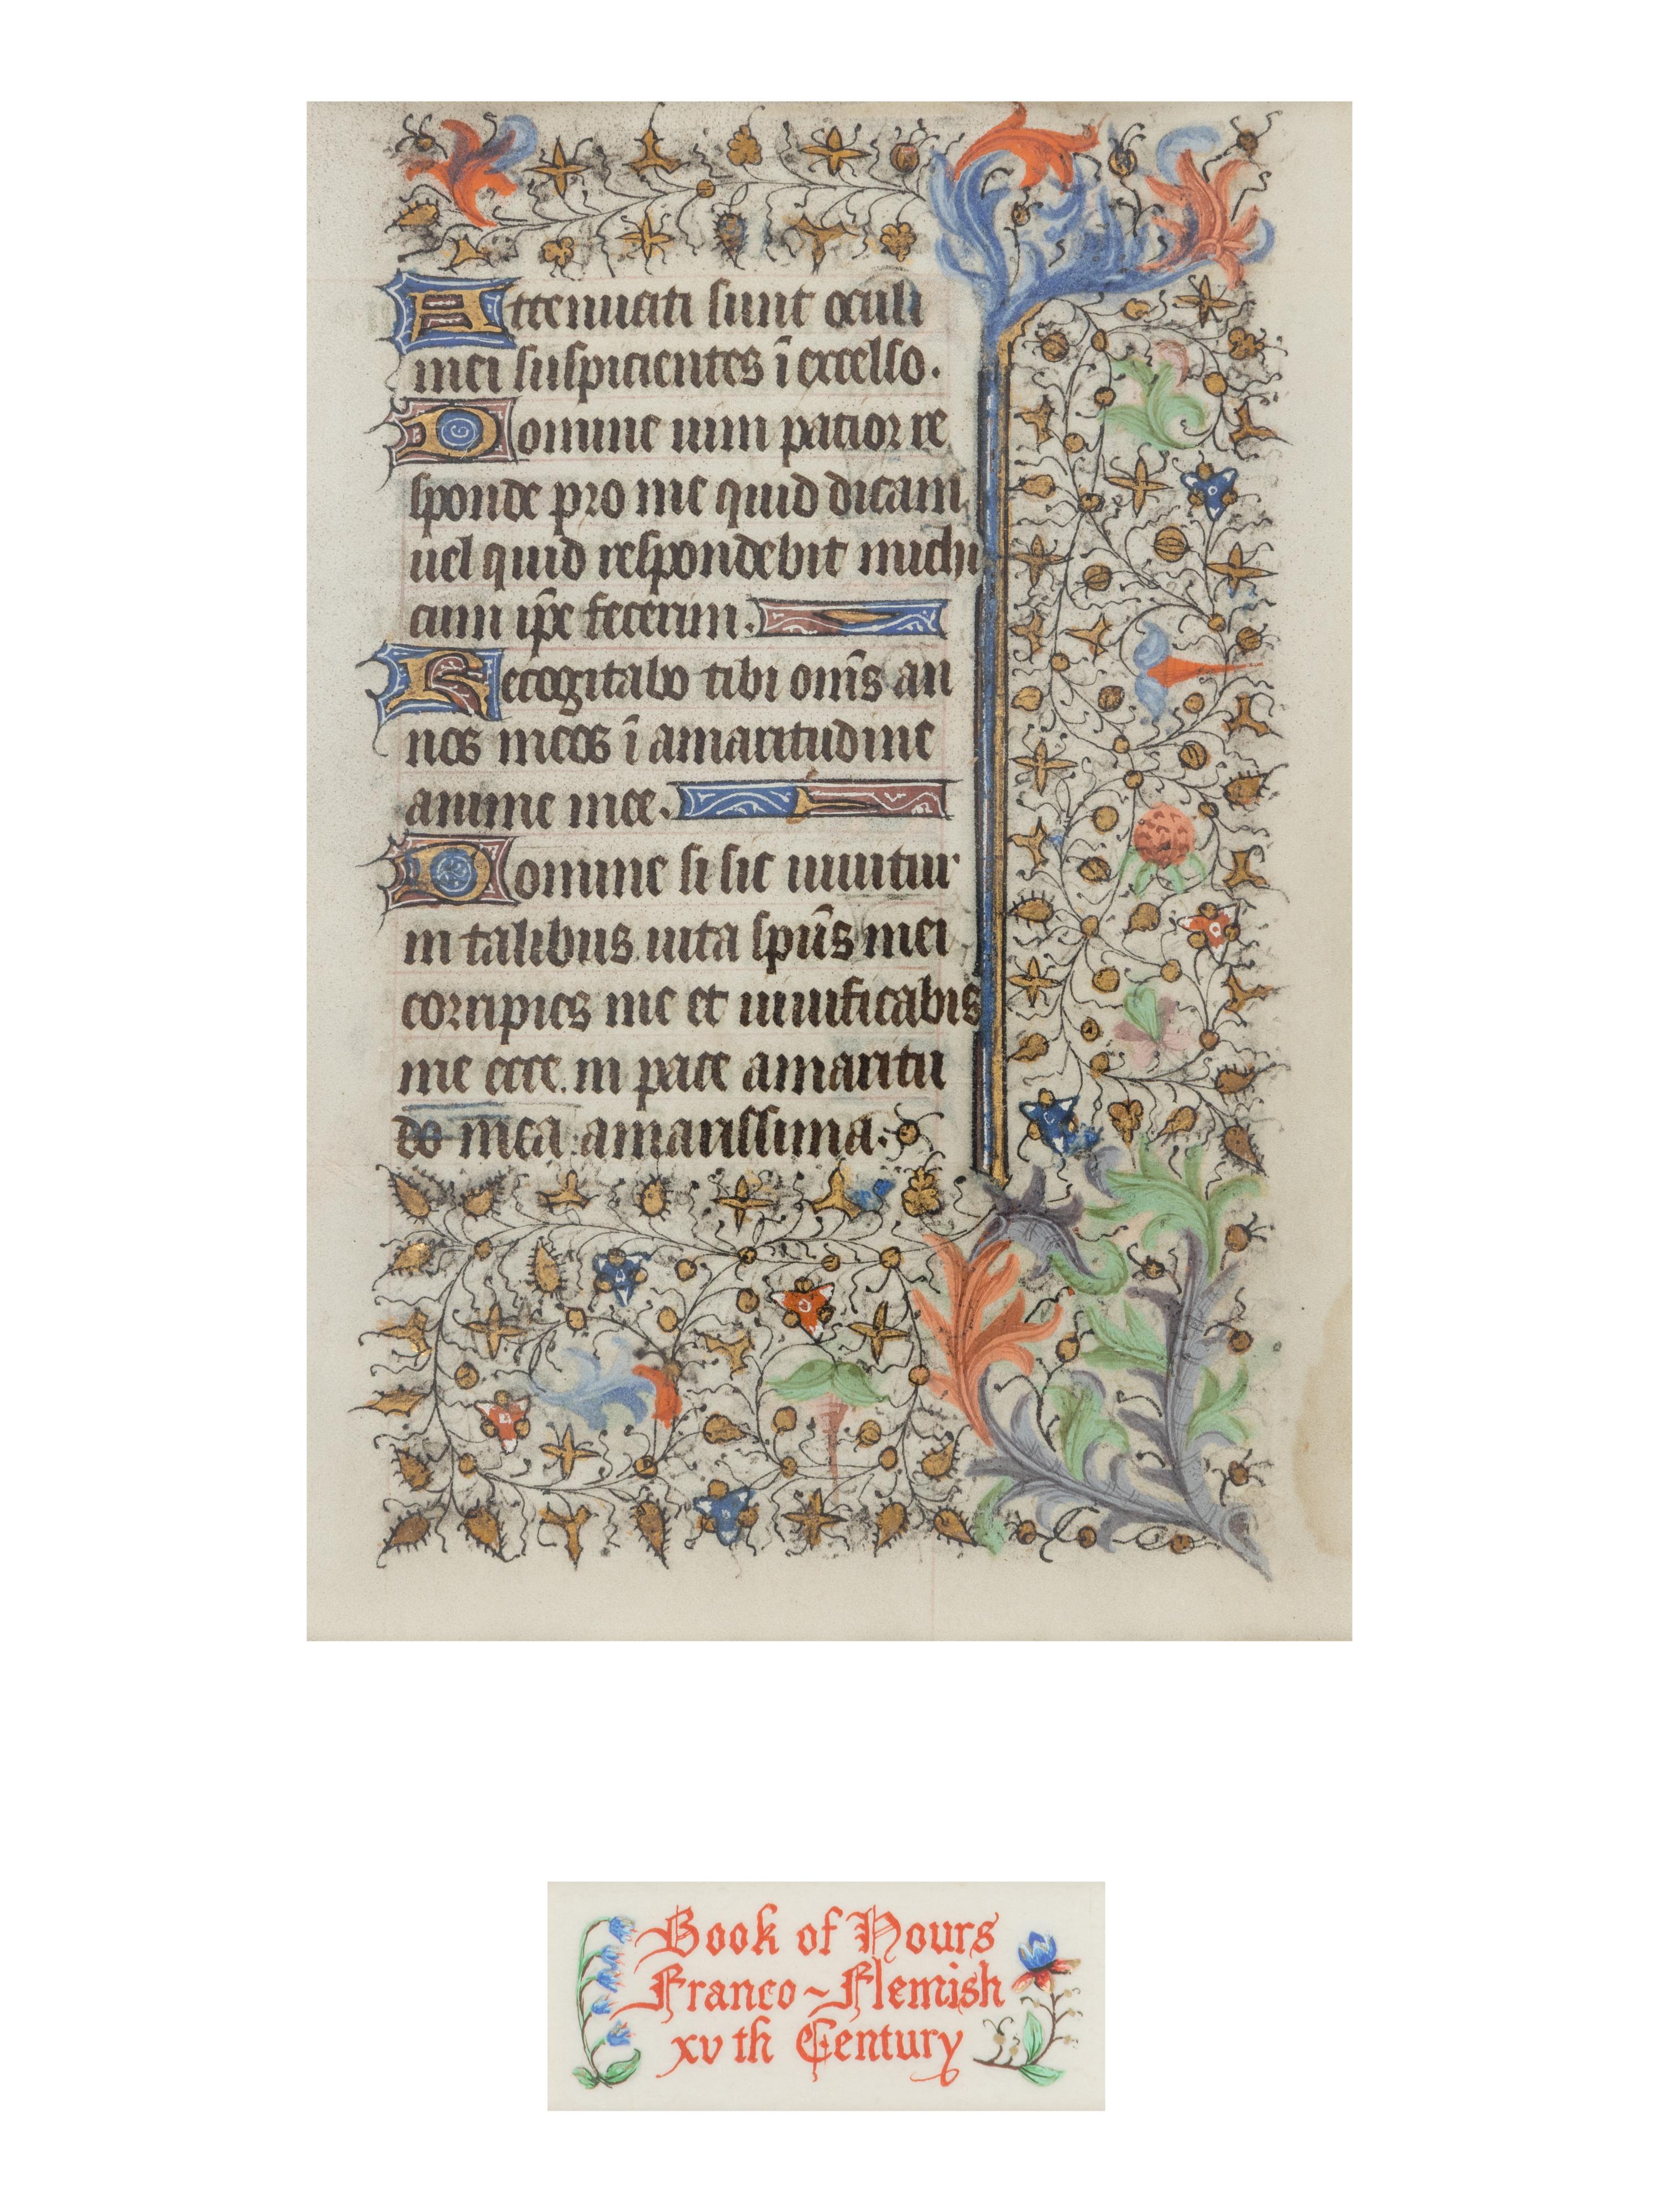 Attenuati sunt oculi
mei suspicientes ī excelso.
Domine uim patior re
sponde pro me quid dicam
uel quid respondebit michi
cum ip̄e fecerim.
Recogitabo tibi om̄s an
nos meos ī amaritudine
anime mee.
Domine si sic uiuitur
in talibus uita spūs mei
corripies me et uiuificabis
me ecce in pace amaritu
do mea amarissima.
Book of Hours
Franco~Flemish
xv th Century